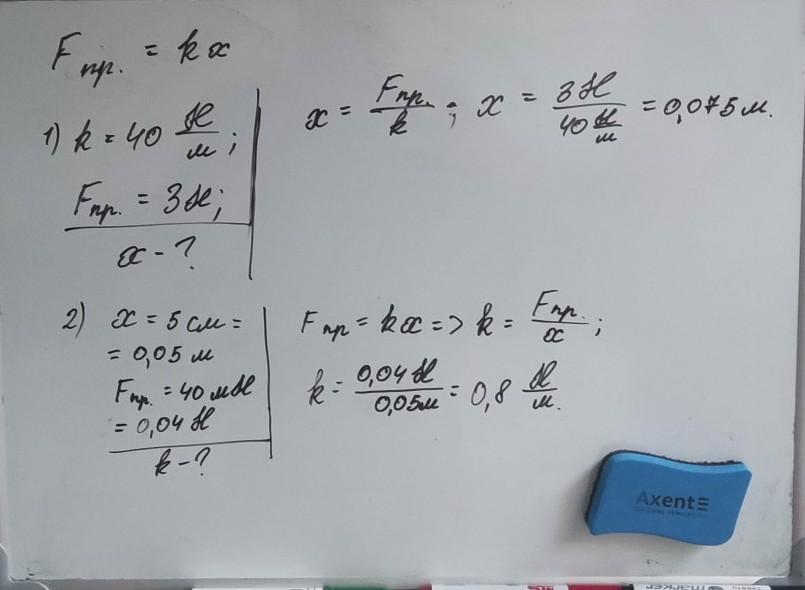 Fпр. = kx
1) k = 40 Н/м;
Fпр. = 3Н;
x - ?
x = Fпр./k; x = 3Н/40 Н/м = 0,075 м.
2) x = 5 см =
= 0,05 м
Fпр. = 40 мН
= 0,04 Н
k - ?
Fпр = kx => k = Fпр./x;
k = 0,04 Н/0,05м = 0,8 Н/м.
Axent